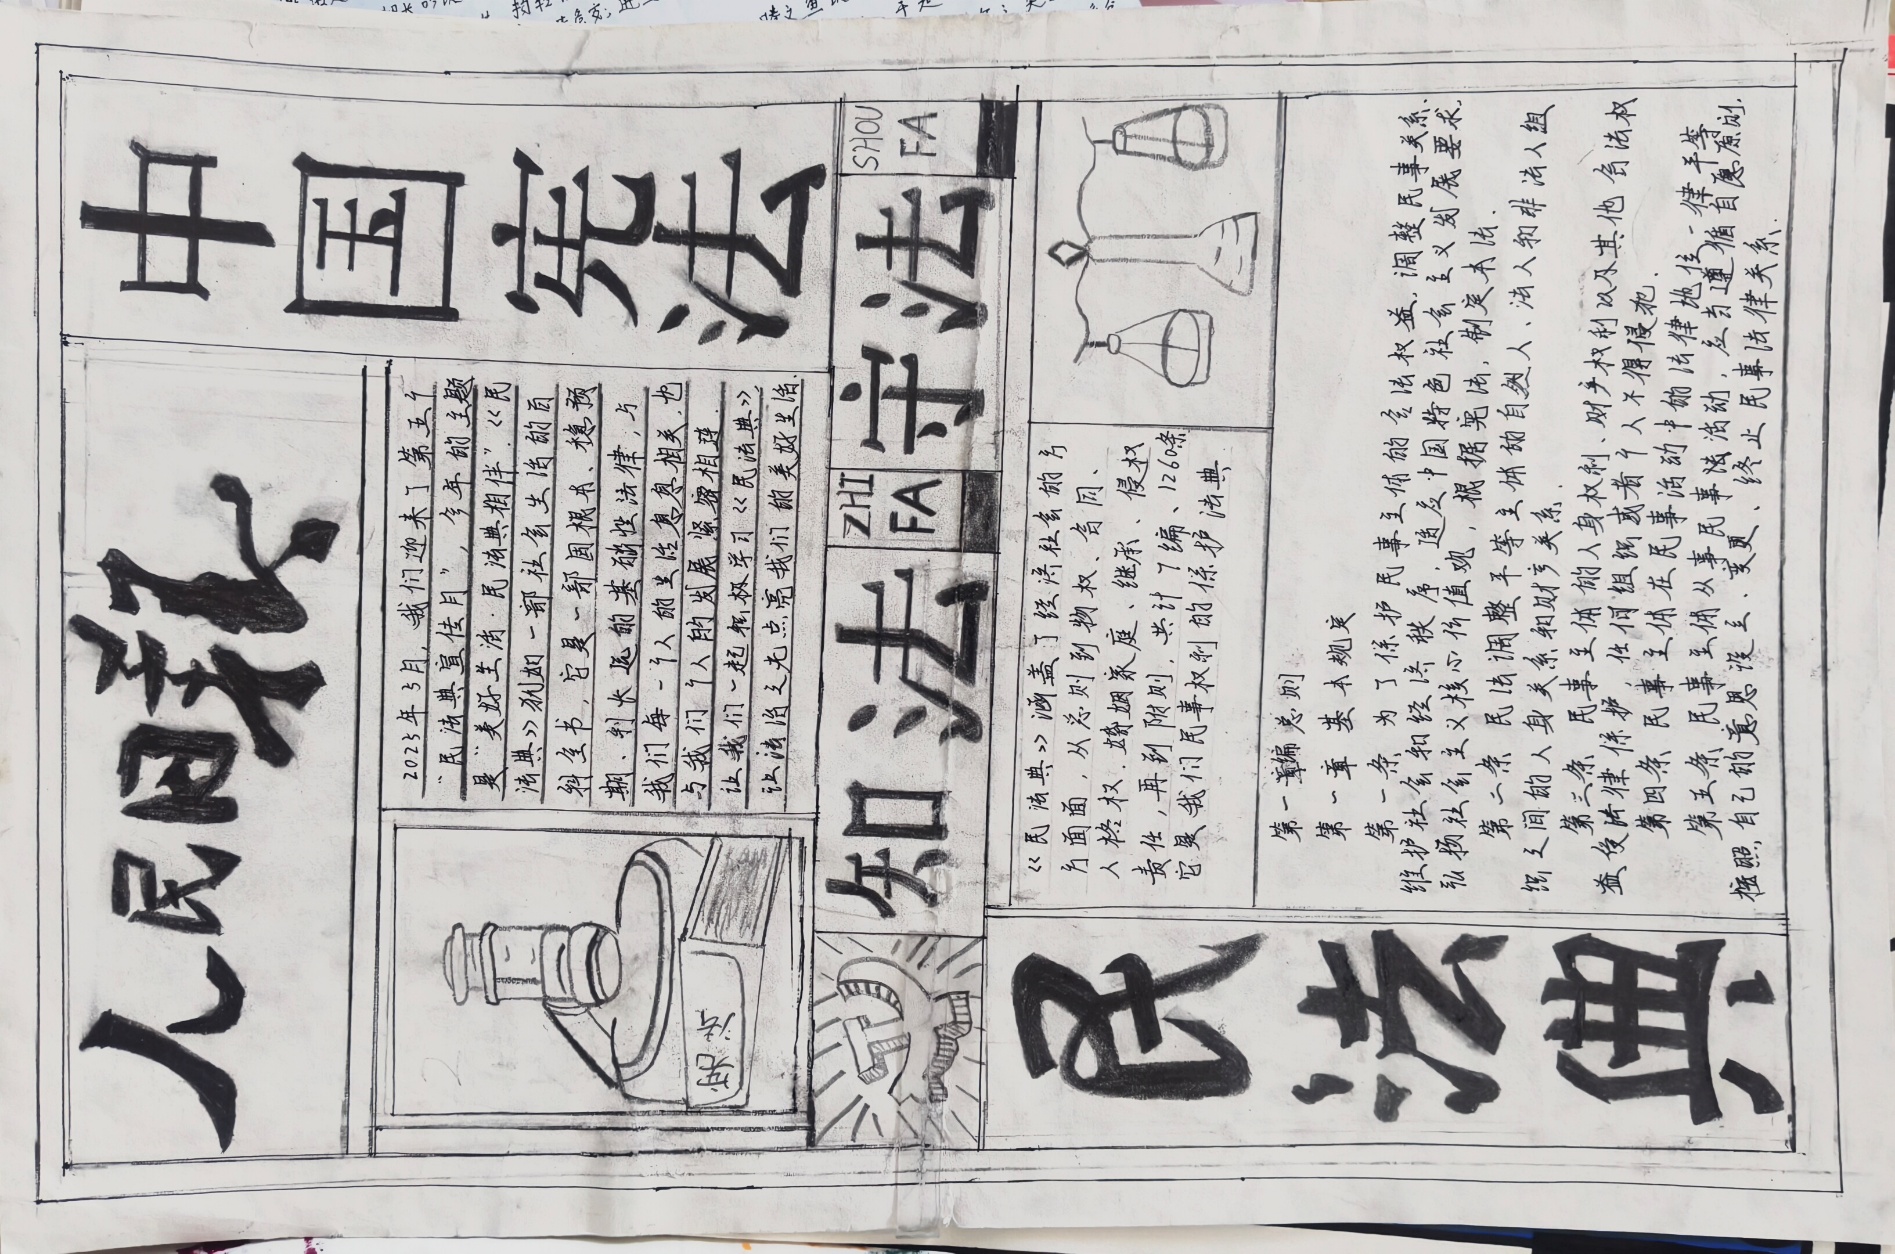 人民日报
中国宪法
2025年5月，我们迎来了第五个
“民法典宣传月”，今年的主题
是“美好生活·民法典相伴”.《民
法典》犹如一部社会生活的百
科全书，它是一部固根本、稳预
期、利长远的基础性法律，与
我们每一个人的生活息息相关，也
与我们个人的发展紧密相连.
让我们一起积极学习《民法典》
让法治之光点亮我们的美好生活.
知法
ZHI
FA
守法
SHOU
FA
《民法典》涵盖了经济社会的方
方面面，从总则到物权、合同、
人格权、婚姻家庭、继承、侵权
责任，再到附则，共计7编、1260条
它是我们民事权利的保护法典
民法典
第一编 总则
第一章 基本规定
第一条 为了保护民事主体的合法权益，调整民事关系，
维护社会和经济秩序，适应中国特色社会主义发展要求，
弘扬社会主义核心价值观，根据宪法，制定本法.
第二条 民法调整平等主体的自然人、法人和非法人组
织之间的人身关系和财产关系.
第三条 民事主体的人身权利、财产权利以及其他合法权
益受法律保护，任何组织或者个人不得侵犯.
第四条 民事主体在民事活动中的法律地位一律平等
第五条 民事主体从事民事活动，应当遵循自愿原则，
按照自己的意思设立、变更、终止民事法律关系.